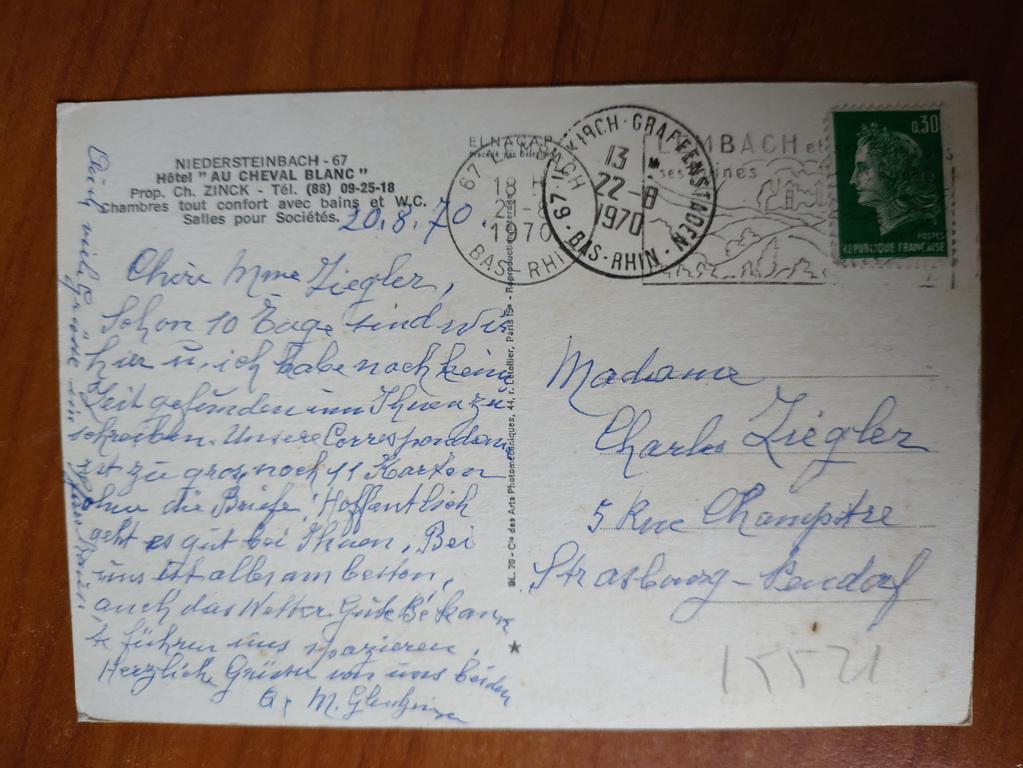 NIEDERSTEINBACH - 67
Hôtel "AU CHEVAL BLANC"
Prop. Ch. ZINCK - Tél. (88) 09-25-18
Chambres tout confort avec bains et W.C.
Salles pour Sociétés.
20.8.70
Chère Mme Ziegler,
Schon 10 Tage sind wir
hier u. ich habe noch keine
Zeit gefunden um Ihnen zu
schreiben. Unsere Correspondenz
ist zu gros, noch 11 Karten
ohne die Briefe. Hoffentlich
geht es gut bei Ihnen. Bei
uns ist alles am besten,
auch das Wetter. Gute Bekann
te führen uns spazieren.
Herzliche Grüsse von uns beiden
M.
ELNACAR
BL. 70 - Cie des Arts Photomécaniques, 44, r. Letellier, Paris 15e - Reproduction
67
18 H
1970
BAS-RHI
67 · ILLKIRCH-GRAFFENSTADEN · BAS-RHIN
13
22-8
1970
MBACH et
ses
ines
0,30
POSTES
REPUBLIQUE FRANÇAISE
Madame
Charles Ziegler
5 Rue Champêtre
Strasbourg - Neudorf
15521